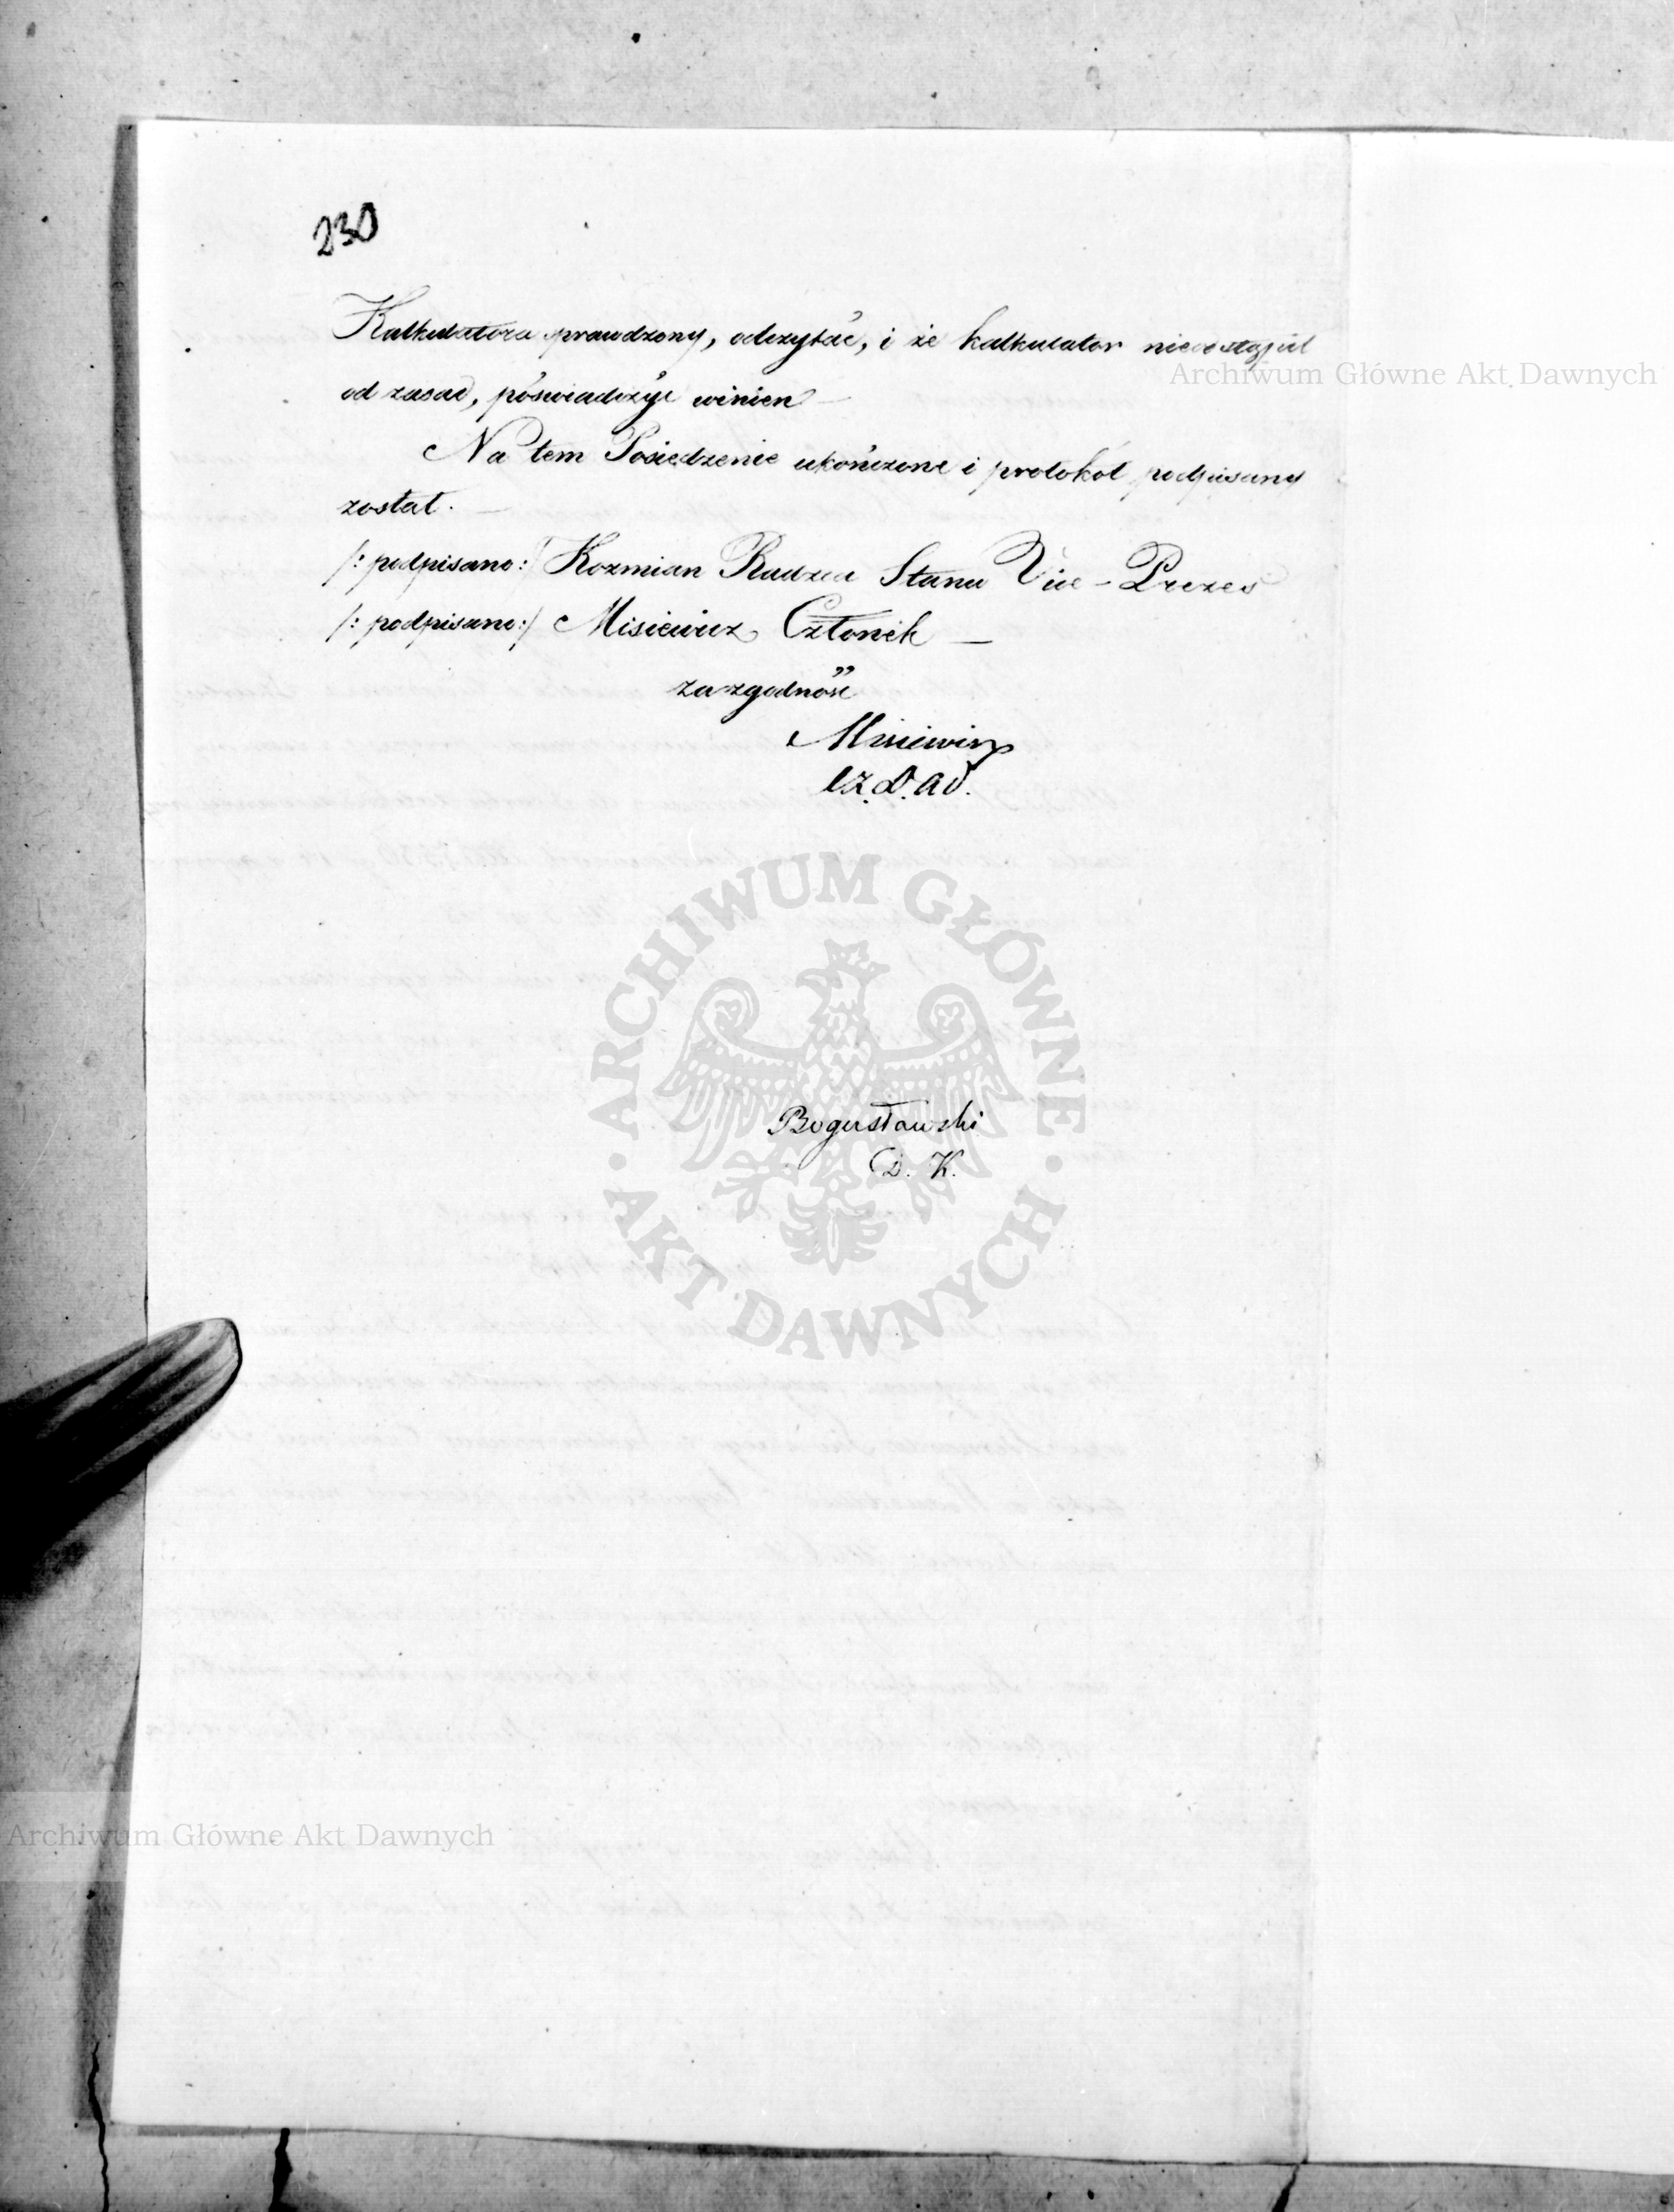 230
Kalkulatora sprawdzony, odczytać, i że kalkulator nieodstąpił
od zasad, poświadczyć winien —
Na tem Posiedzenie ukończone i protokół podpisany
został. —
/: podpisano: / Kozmian Radzca Stanu Vice - Prezes
/: podpisano: / Misiewicz Członek —
za zgodność
Misiewicz
Bogusławski
D. K.
Archiwum Główne Akt Dawnych
ARCHIWUM GŁÓWNE · AKT DAWNYCH ·
Archiwum Główne Akt Dawnych